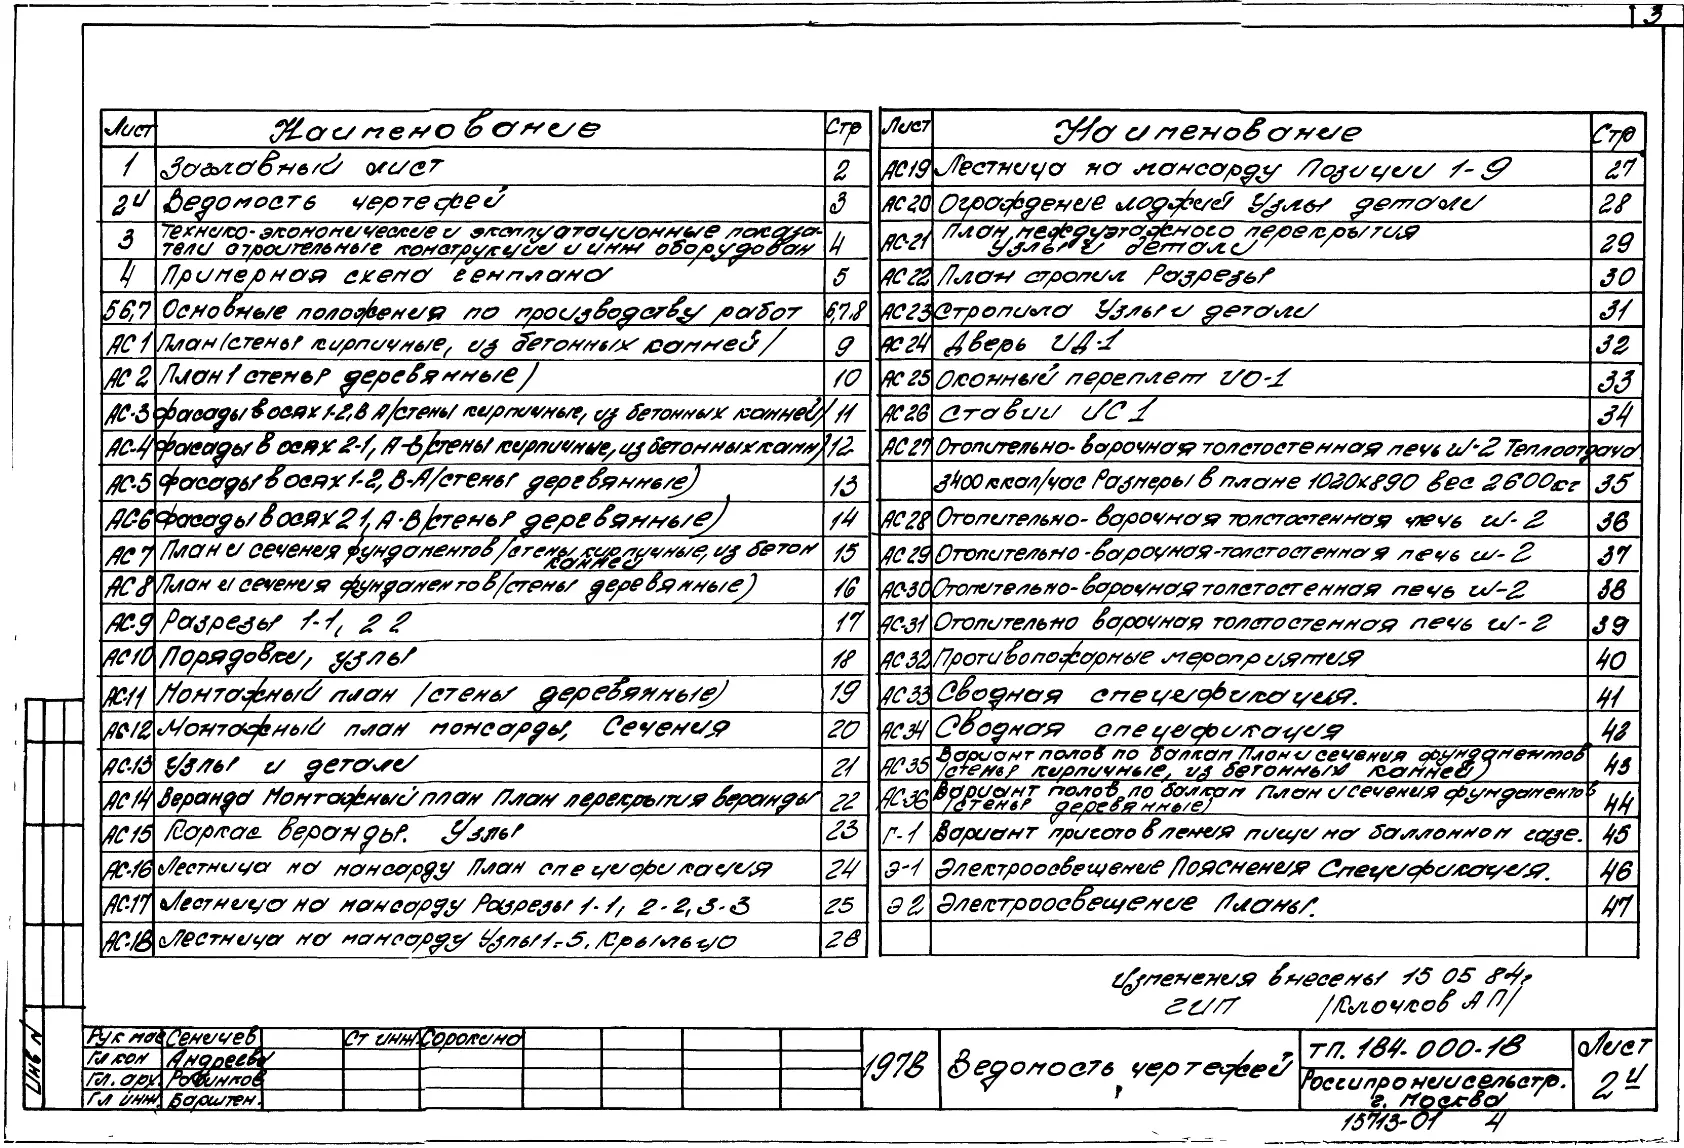 3
Лист Наименование Стр
1 Заглавный лист 2
2И Ведомость чертежей 3
3 Технико-экономические и эксплуатационные показа-
тели строительные конструкции и инж оборудован 4
4 Примерная схема генплана 5
5 6,7 Основные положения по производству работ 6,7,8
АС 1 План/стены кирпичные, из бетонных камней/ 9
АС 2 План/стены деревянные) 10
АС-3 Фасады в осях 1-2, В А/стены кирпичные, из бетонных камней) 11
АС-4 Фасады в осях 2-1, А-В/стены кирпичные, из бетонных камн) 12
АС-5 Фасады в осях 1-2, В-А/стены деревянные) 13
АС-6 Фасады в осях 2 1, А-В/стены деревянные) 14
АС 7 План и сечения фундаментов/стены кирпичные, из бетон
камней 15
АС 8 План и сечения фундаментов/стены деревянные) 16
АС-9 Разрезы 1-1, 2 2 17
АС 10 Порядовки, узлы 18
АС-11 Монтажный план /стены деревянные) 19
АС-12 Монтажный план мансарды, Сечения 20
АС-13 Узлы и детали 21
АС 14 Веранда Монтажный план План перекрытия веранды 22
АС 15 Каркас веранды. Узлы 23
АС-16 Лестница на мансарду План спецификация 24
АС-17 Лестница на мансарду Разрезы 1-1, 2-2, 3-3 25
АС-18 Лестница на мансарду Узлы 1-5. Крыльцо 26
Лист Наименование Стр
АС19 Лестница на мансарду Позиции 1-9 27
АС20 Ограждение лоджий Узлы детали 28
АС-21 План междуэтажного перекрытия
Узлы и детали 29
АС 22 План стропил Разрезы 30
АС23 Стропила Узлы и детали 31
АС 24 Дверь ИД-1 32
АС 25 Оконный переплет ИО-1 33
АС26 Ставни ИС 1 34
АС 27 Отопительно-варочная толстостенная печь Ш-2 Теплоотдача
3400 ккал/час Размеры в плане 1020х890 вес 2600кг 35
АС28 Отопительно-варочная толстостенная печь Ш-2 36
АС29 Отопительно-варочная-толстостенная печь Ш-2 37
АС-30 Отопительно-варочная толстостенная печь Ш-2 38
АС-31 Отопительно варочная толстостенная печь Ш-2 39
АС 32 Противопожарные мероприятия 40
АС 33 Сводная спецификация. 41
АС 34 Сводная спецификация 42
АС 35 Вариант полов по балкам План и сечения фундаментов
/стены кирпичные, из бетонных камней) 43
АС-36 Вариант полов по балкам План и сечения фундаментов
/стены деревянные) 44
Г-1 Вариант приготовления пищи на баллонном газе. 45
Э-1 Электроосвещение Пояснения Спецификация. 46
Э 2 Электроосвещение Планы. 47
Изменения внесены 15 05 84г
ГИП /Клочков А П/
Инв N
Рук мас Сеничев Ст инж Сорокина
Гл кон Андреева
Гл. арх. Рабинков
Гл инж. Барштен.
1978
Ведомость чертежей
ТП. 184-000-18
Росгипрониисельстр.
г. Москва
Лист
2И
15713-01 4